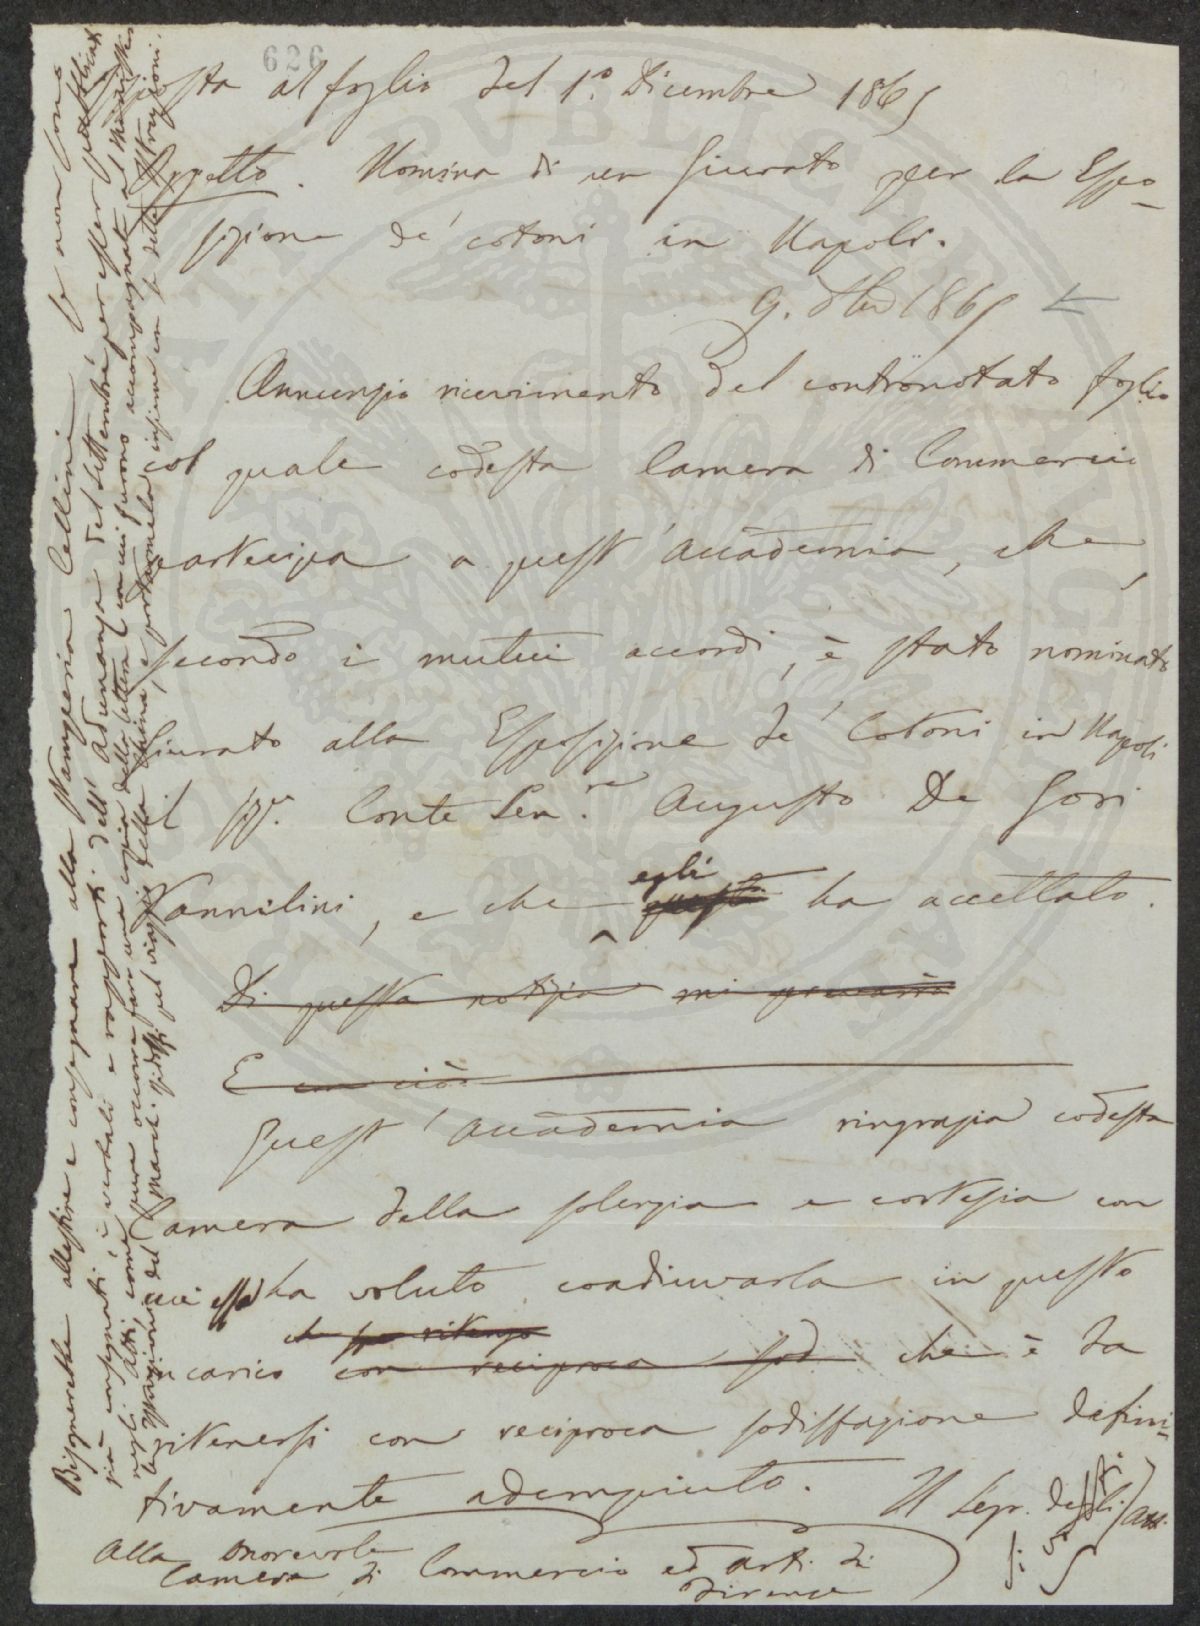 626
Risposta al foglio del 1.º Dicembre 1865
Oggetto. Nomina di un Giurato per la Espo-
sizione de' cotoni in Napoli.
9. Xbre 1865
Annunzio ricevimento del controndotato foglio
col quale codesta Camera di Commercio
partecipa a quest'Accademia, che,
secondo i mutui accordi, è stato nominato
Giurato alla Esposizione de' Cotoni in Napoli
il Sigr. Conte Sen.re Augusto De Gori
Pannilini, e che egli questi ha accettato.
Di questa notizia mi
E con ciò
Quest'Accademia ringrazia codesta
Camera della solerzia e cortesia con
cui essa ha voluto coadiuvarla in questo
che ritengo
incarico con reciproca sod che è da
ritenersi con reciproca sodisfazione defini-
tivamente adempiuto. Il Segr. degli Atti
Alla Onorevole
Camera di Commercio ed Arti di
Firenze
Bisognerebbe allestire e consegnare alla Stamperia Cellini, se non sono
già consegnati i verbali e rapporti dell'Adunanza del Settembre per esser pubblicati
negli Atti come pure occorre fare una copia della lettera con cui furono accompagnate al Ministro
le del March. Ridolfi pel viaggio della China, e portarmela insieme con le dette Istruzioni.